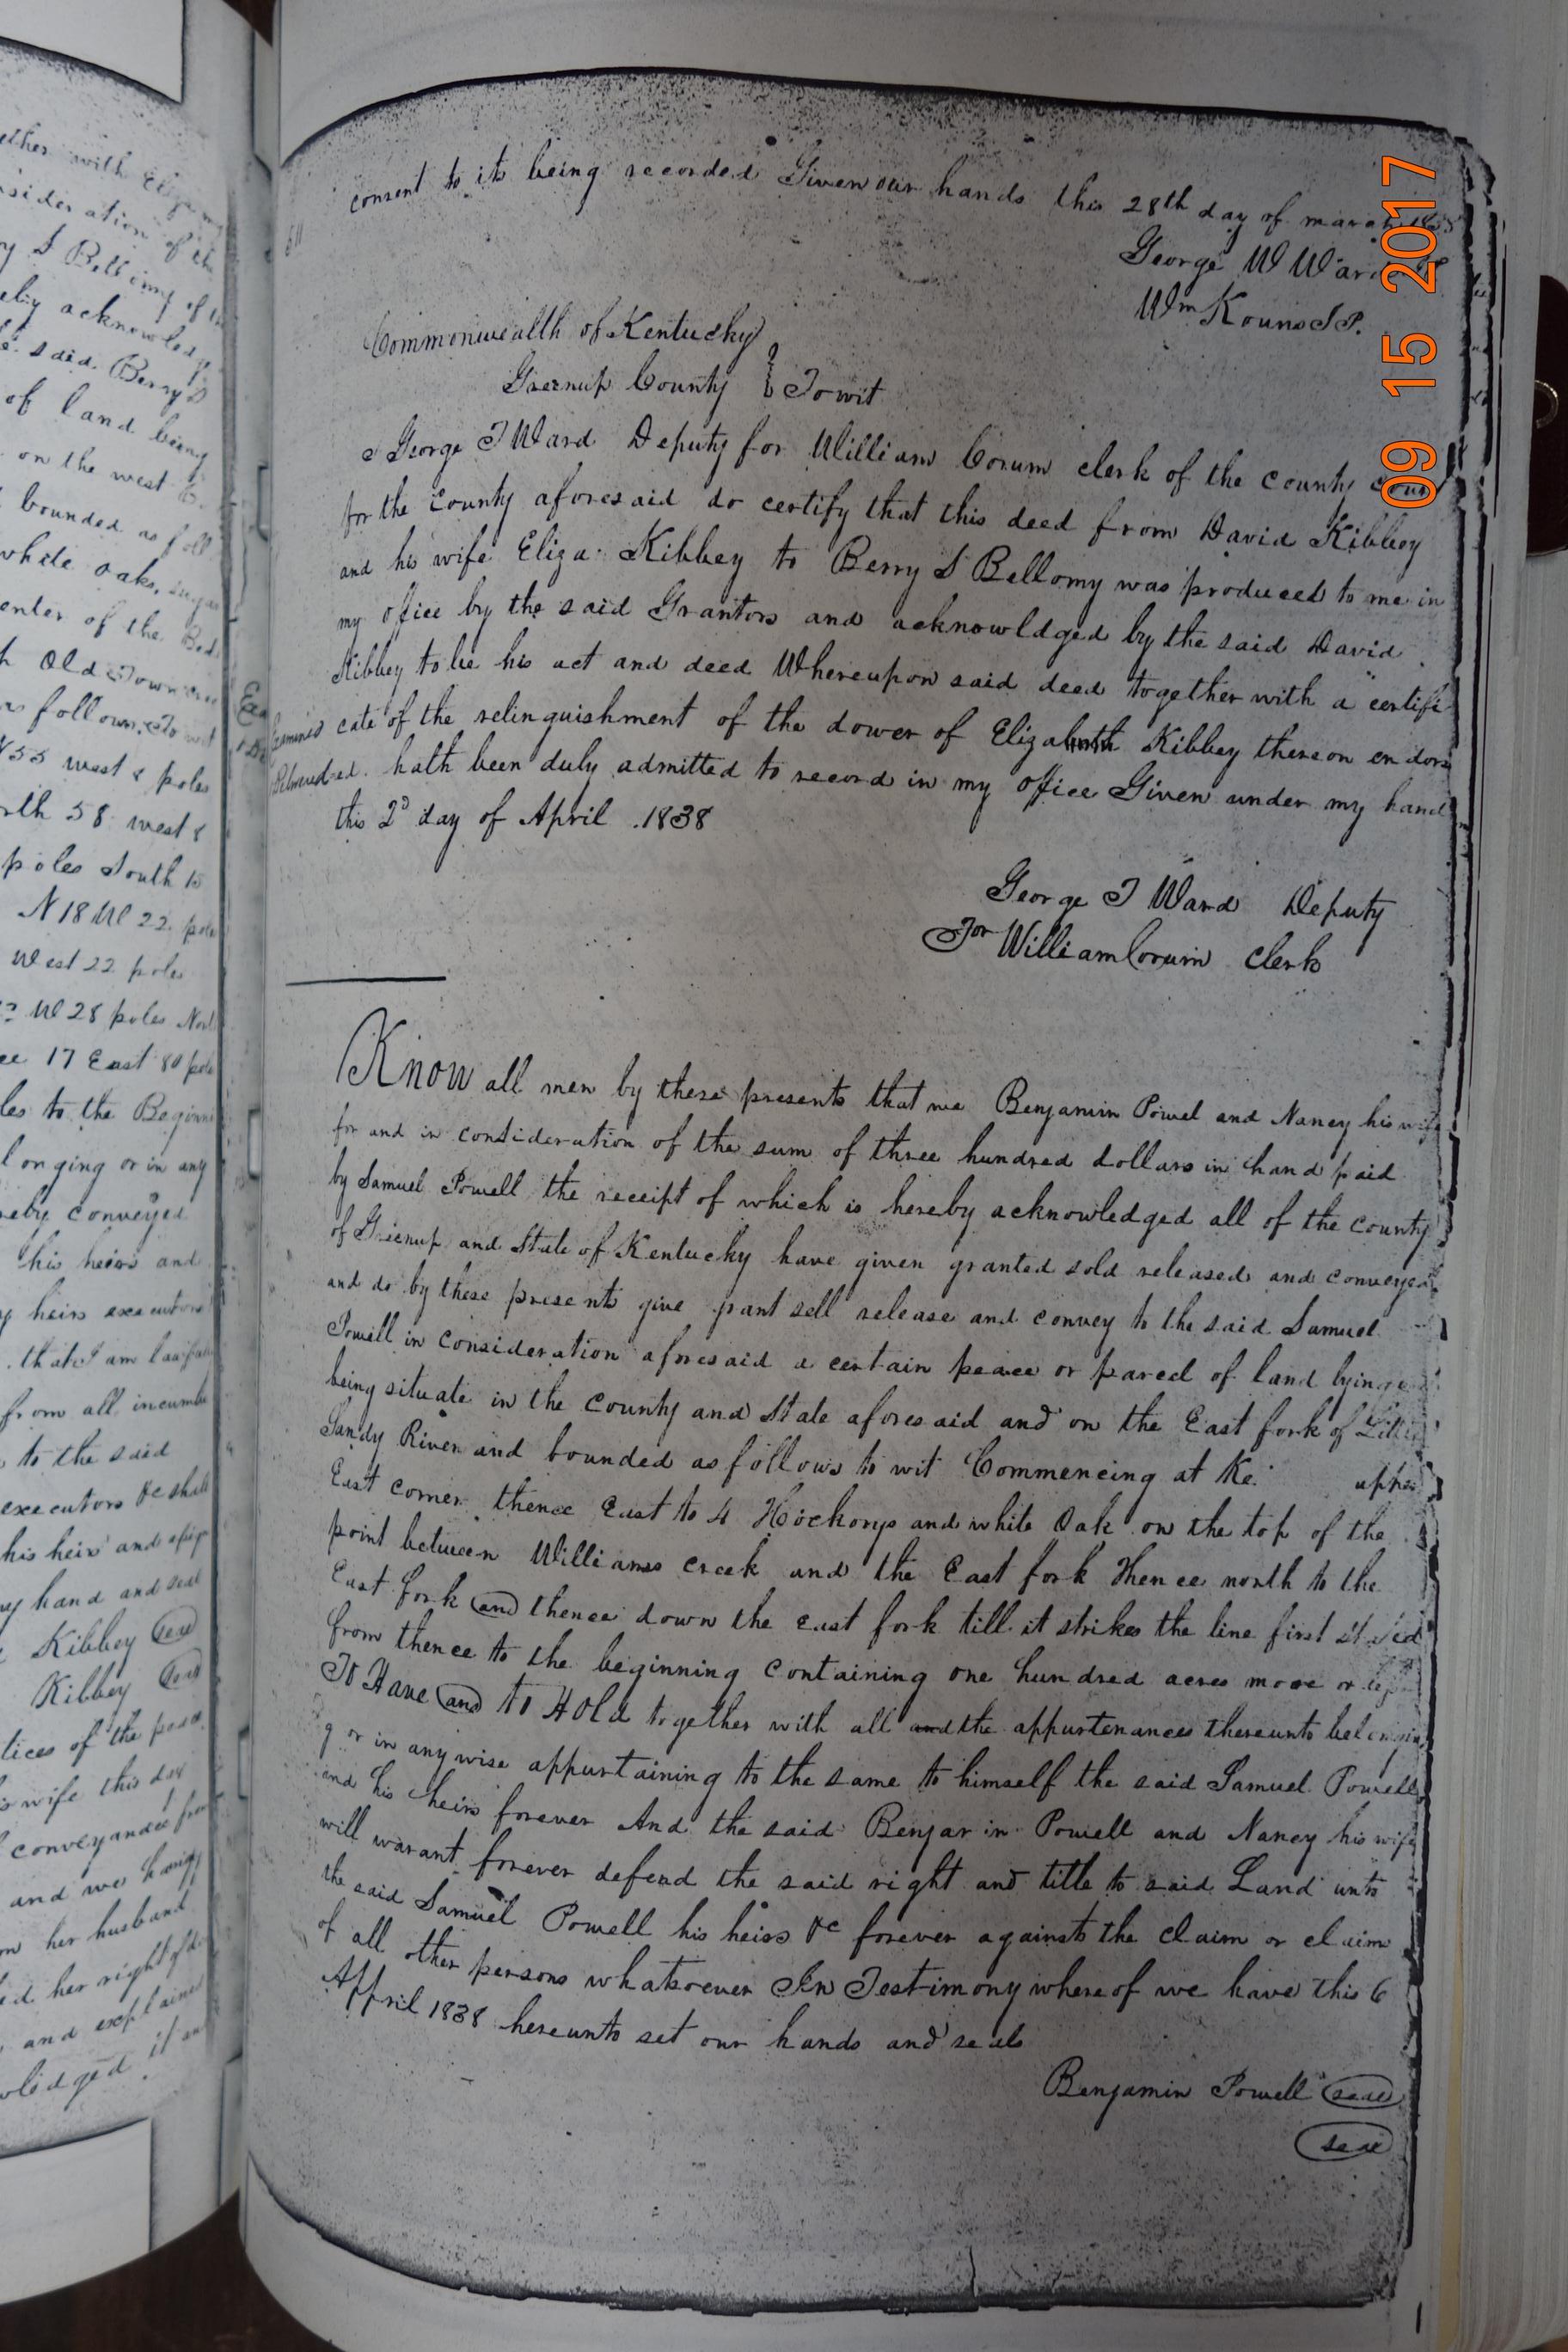 ether with Eliza
sideration of the
y S Bellomy of
eby acknowledg
e said Berry S
of land being
on the west
bounded as foll
white oaks, sugar
enter of the Bed
h Old Town
as follows To wit
N 55 west 8 poles
rth 58 west 8
poles South 15
N 18 W 22 pole
West 22 poles
W 28 poles Nort
ce 17 East 80 pole
les to the Beginni
longing or in any
reby conveyed
his heirs and
y heirs executors
that I am lawfull
from all incumbe
to the said
executors &c shall
his heirs and assigns
my hand and seal
Kibbey seal
Kibbey seal
tices of the peace
s wife this day
conveyance from
and we having
m her husband
ed her right of
and explained
wledged it
consent to its being recorded Given our hands this 28th day of march
George W Ward
Wm Kouns J.P.
Commonwealth of Kentucky
Greenup County } To wit
I George T Ward Deputy for William Corum clerk of the county cour
for the County aforesaid do certify that this deed from David Kibbey
and his wife Eliza Kibbey to Berry S Bellomy was produced to me in
my office by the said Grantors and acknowldged by the said David
Kibbey to be his act and deed Whereupon said deed together with a certifi
Examined cate of the relinquishment of the dower of Elizabeth Kibbey thereon endors
ed. hath been duly admitted to record in my office Given under my hand
this 2d day of April 1838
George T Ward Deputy
For William Corum Clerk
Know all men by these presents that we Benjamin Powel and Nancy his wife
for and in consideration of the sum of three hundred dollars in hand paid
by Samuel Powell the receipt of which is hereby acknowledged all of the county
of Greenup and State of Kentucky have given granted sold released and conveyed
and do by these presents give grant sell release and convey to the said Samuel
Powell in consideration aforesaid a certain peace or parcel of land lying &
being situate in the County and State aforesaid and on the East fork of Little
Sandy River and bounded as follows to wit Commencing at Ke. upper
East corner thence East to 4 Hockorys and white Oak on the top of the
point between Williams creek and the East fork Thence north to the
East fork and thence down the east fork till it strikes the line first stated
from thence to the beginning Containing one hundred acres more or less
To Have and to Hold together with all and the appurtenances thereunto belongin
g or in anywise appurtaining to the same to himself the said Samuel Powell
and his heirs forever And the said Benjar in Powell and Nancy his wife
will warant forever defend the said right and title to said Land unto
the said Samuel Powell his heirs &c forever against the claim or claims
of all other persons whatsoever In Testimony whereof we have this 6
Appril 1838 hereunto set our hands and seals
Benjamin Powell seal
seal
09 15 2017